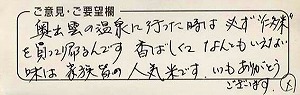 ご意見・ご要望欄
奥出雲の温泉に行った時は必ず"仁多米"
を買って帰るんです 香ばしくて なんともいえない
味は 家族皆の人気米です。いつもありがとう
ございます。